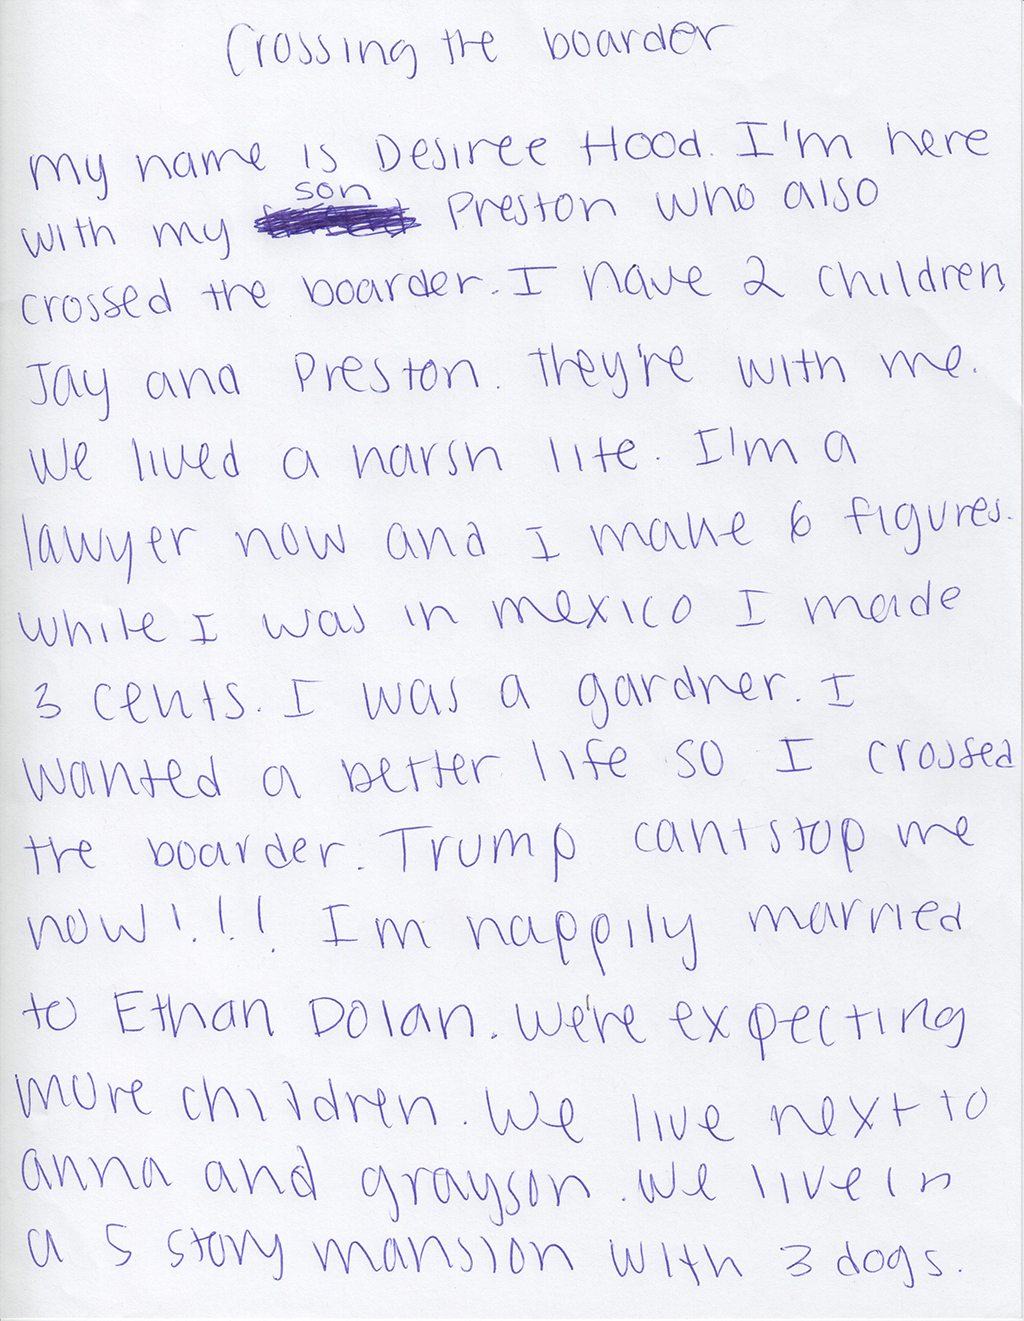 Crossing the boarder
my name is Desiree Hood. I'm here
son
with my Preston who also
crossed the boarder. I have 2 children,
Jay and Preston. They're with me.
We lived a harsh life. I'm a
lawyer now and I make 6 figures.
While I was in mexico I made
3 cents. I was a gardner. I
wanted a better life so I crossed
the boarder. Trump cant stop me
now!!! I'm happily married
to Ethan Dolan. We're expecting
more children. We live next to
anna and grayson. We live in
a 5 story mansion with 3 dogs.